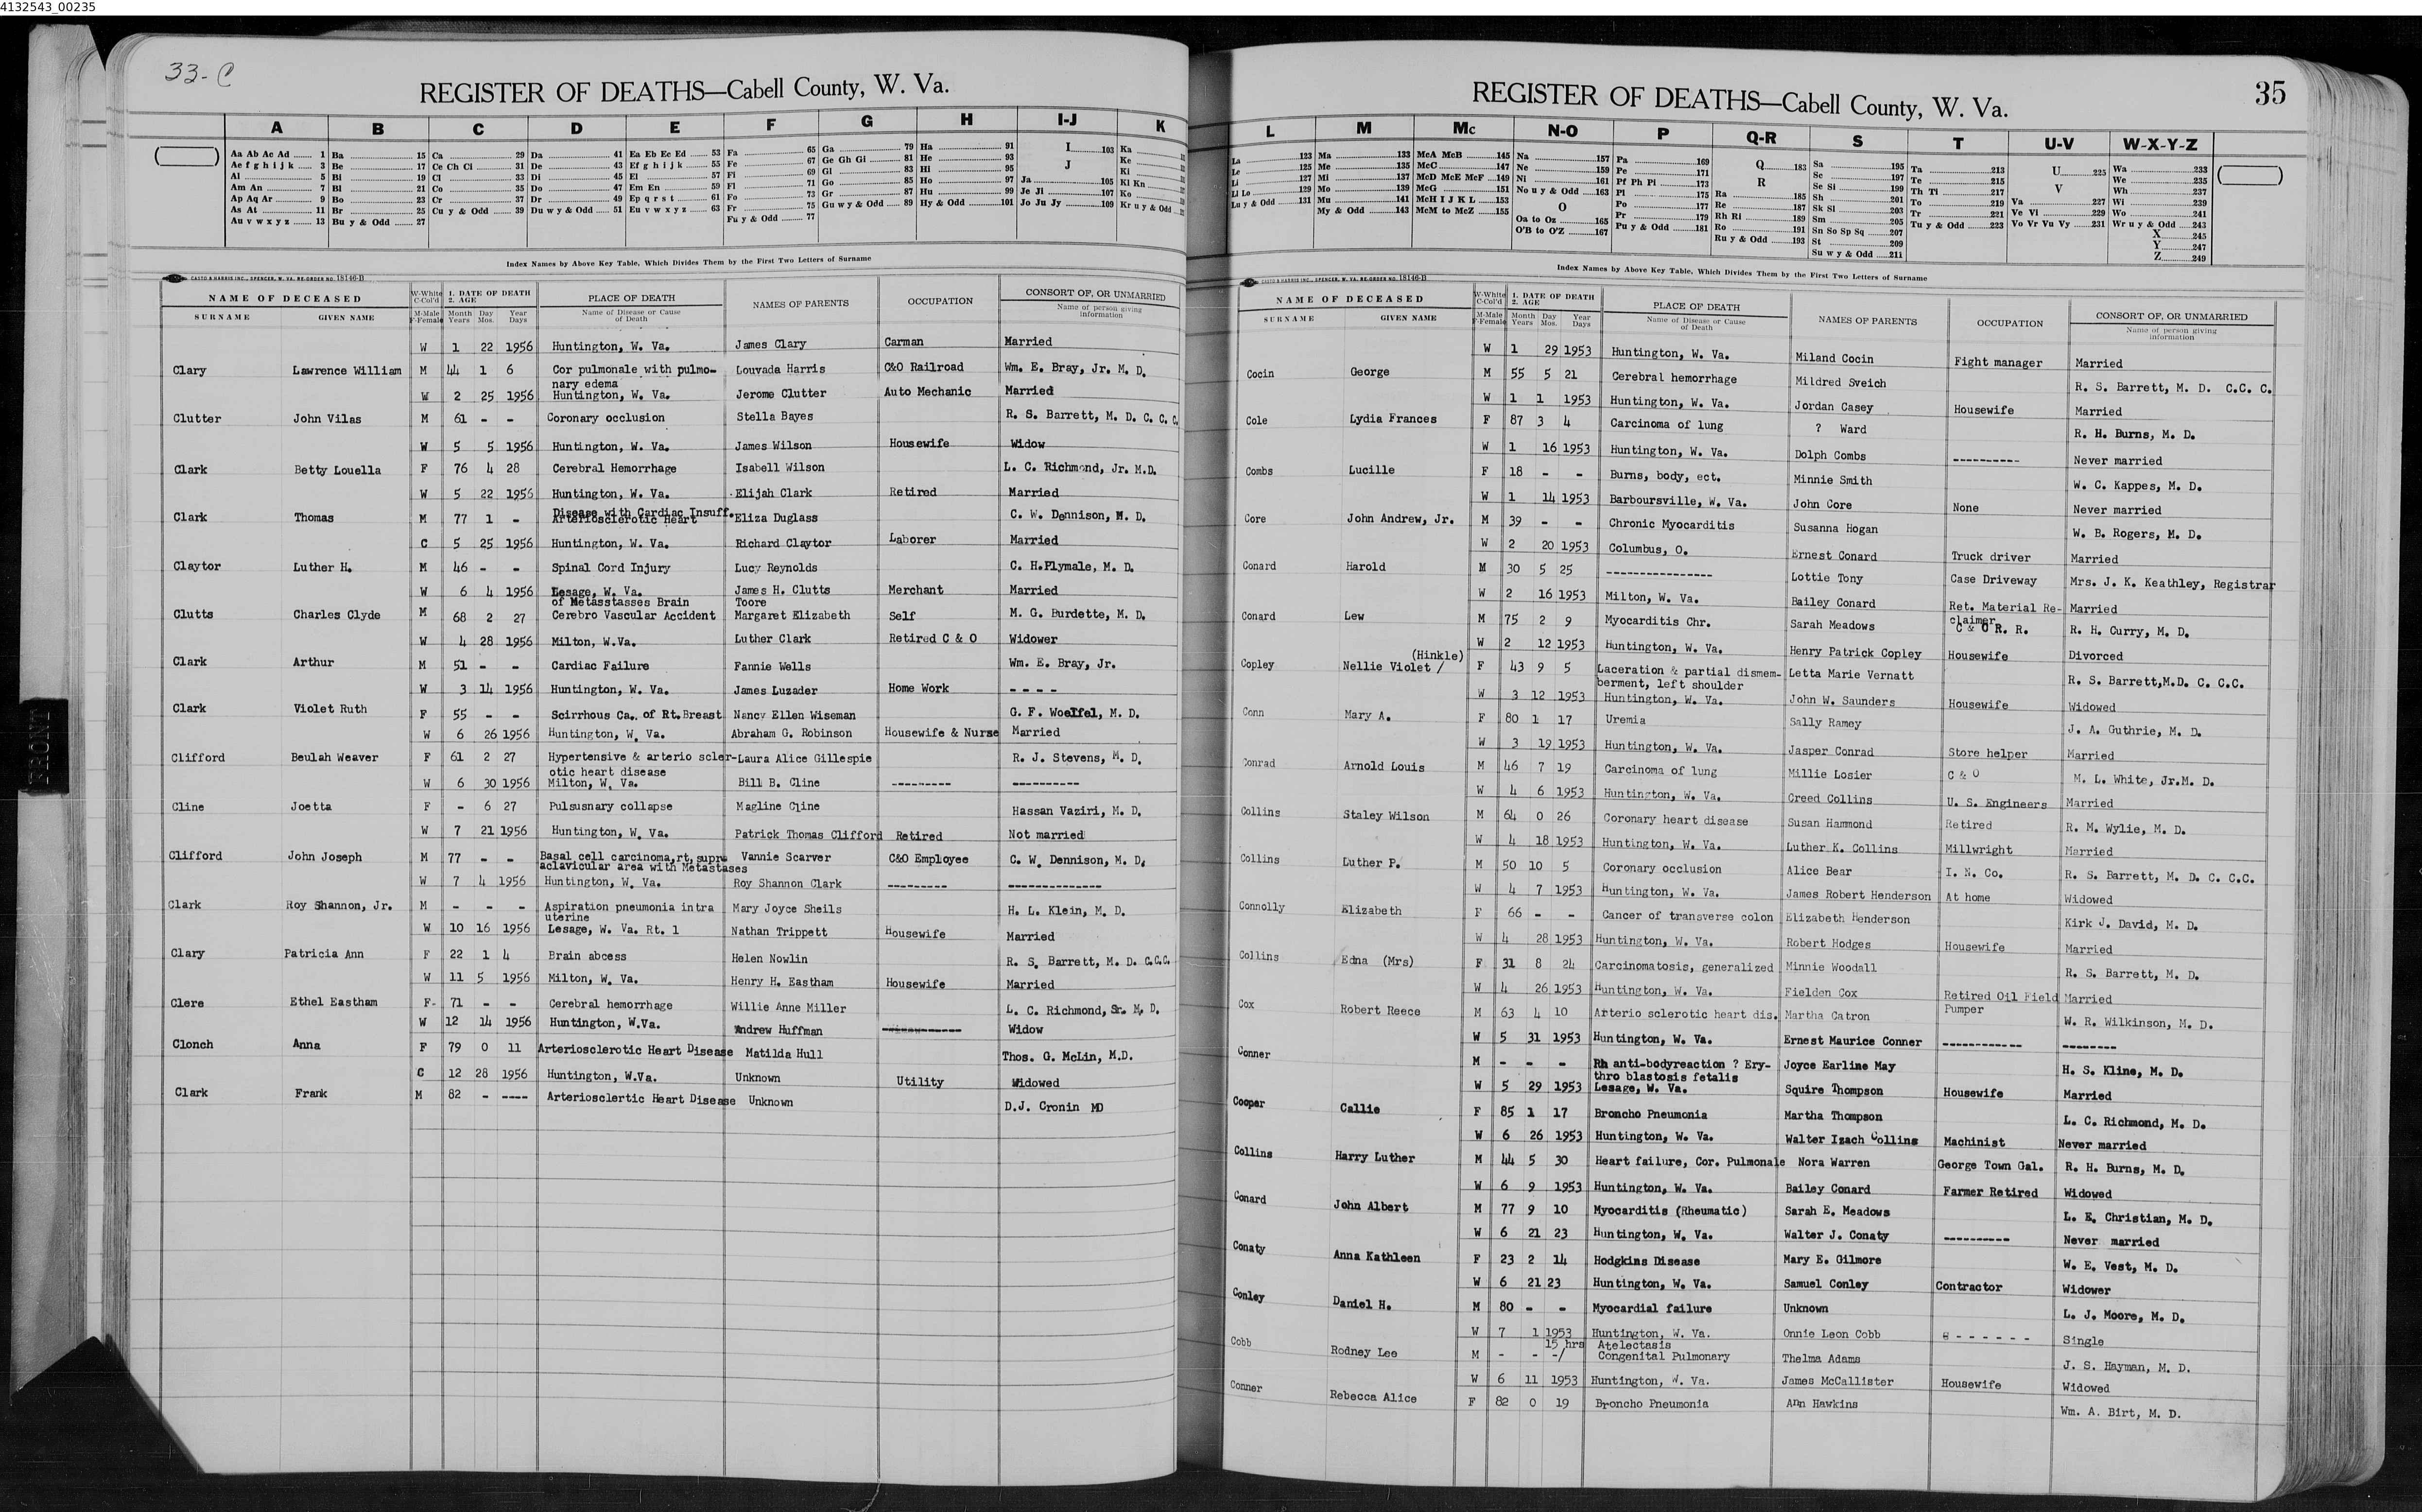 4132543_00235
33-C
REGISTER OF DEATHS—Cabell County, W. Va.
A B C D E F G H I-J K
Aa Ab Ac Ad 1 Ba 15 Ca 29 Da 41 Ea Eb Ec Ed 53 Fa 65 Ga 79 Ha 91 I 103 Ka
Ae f g h i j k 3 Be 17 Ce Ch Ci 31 De 43 Ef g h i j k 55 Fe 67 Ge Gh Gi 81 He 93 J Ke
Al 5 Bi 19 Cl 33 Di 45 El 57 Fi 69 Gl 83 Hi 95 Ja 105 Ki
Am An 7 Bl 21 Co 35 Do 47 Em En 59 Fl 71 Go 85 Ho 97 Je Ji 107 Kl Kn
Ap Aq Ar 9 Bo 23 Cr 37 Dr 49 Ep q r s t 61 Fo 73 Gr 87 Hu 99 Jo Ju Jy 109 Ko
As At 11 Br 25 Cu y & Odd 39 Du w y & Odd 51 Eu v w x y z 63 Fr 75 Gu w y & Odd 89 Hy & Odd 101 Kr u y & Odd
Au v w x y z 13 Bu y & Odd 27 Fu y & Odd 77
Index Names by Above Key Table, Which Divides Them by the First Two Letters of Surname
CASTO & HARRIS INC., SPENCER, W. VA. RE-ORDER NO. 18146-B
NAME OF DECEASED W-White C-Col'd 1. DATE OF DEATH 2. AGE PLACE OF DEATH NAMES OF PARENTS OCCUPATION CONSORT OF, OR UNMARRIED
SURNAME GIVEN NAME M-Male F-Female Month Years Day Mos. Year Days Name of Disease or Cause of Death Name of person giving information
W 1 22 1956 Huntington, W. Va. James Clary Carman Married
Clary Lawrence William M 44 1 6 Cor pulmonale with pulmo- Louvada Harris C&O Railroad Wm. E. Bray, Jr. M. D.
nary edema
W 2 25 1956 Huntington, W. Va. Jerome Clutter Auto Mechanic Married
Clutter John Vilas M 61 - - Coronary occlusion Stella Bayes R. S. Barrett, M. D. C. C. C.
W 5 5 1956 Huntington, W. Va. James Wilson Housewife Widow
Clark Betty Louella F 76 4 28 Cerebral Hemorrhage Isabell Wilson L. C. Richmond, Jr. M.D.
W 5 22 1956 Huntington, W. Va. Elijah Clark Retired Married
Disease with Cardiac Insuff.
Clark Thomas M 77 1 - Arteriosclerotic Heart Eliza Duglass C. W. Dennison, M. D.
C 5 25 1956 Huntington, W. Va. Richard Claytor Laborer Married
Claytor Luther H. M 46 - - Spinal Cord Injury Lucy Reynolds C. H.Plymale, M. D.
W 6 4 1956 Lesage, W. Va. James H. Clutts Merchant Married
of Metasstasses Brain Toore
Clutts Charles Clyde M 68 2 27 Cerebro Vascular Accident Margaret Elizabeth Self M. G. Burdette, M. D.
W 4 28 1956 Milton, W.Va. Luther Clark Retired C & O Widower
Clark Arthur M 51 - - Cardiac Failure Fannie Wells Wm. E. Bray, Jr.
W 3 14 1956 Huntington, W. Va. James Luzader Home Work - - - -
Clark Violet Ruth F 55 - - Scirrhous Ca.. of Rt.Breast Nancy Ellen Wiseman G. F. Woelfel, M. D.
W 6 26 1956 Huntington, W. Va. Abraham G. Robinson Housewife & Nurse Married
Clifford Beulah Weaver F 61 2 27 Hypertensive & arterio scler- Laura Alice Gillespie R. J. Stevens, M. D.
otic heart disease
W 6 30 1956 Milton, W. Va. Bill B. Cline --------- ----------
Cline Joetta F - 6 27 Pulsusnary collapse Magline Cline Hassan Vaziri, M. D.
W 7 21 1956 Huntington, W. Va. Patrick Thomas Clifford Retired Not married
Clifford John Joseph M 77 - - Basal cell carcinoma,rt,supra Vannie Scarver C&O Employee C. W. Dennison, M. D.
aclavicular area with Metastases
W 7 4 1956 Huntington, W. Va. Roy Shannon Clark --------- --------------
Clark Roy Shannon, Jr. M - - - Aspiration pneumonia intra Mary Joyce Sheils H. L. Klein, M. D.
uterine
W 10 16 1956 Lesage, W. Va. Rt. 1 Nathan Trippett Housewife Married
Clary Patricia Ann F 22 1 4 Brain abcess Helen Nowlin R. S. Barrett, M. D. C.C.C.
W 11 5 1956 Milton, W. Va. Henry H. Eastham Housewife Married
Clere Ethel Eastham F- 71 - - Cerebral hemorrhage Willie Anne Miller L. C. Richmond, Sr. M. D.
W 12 14 1956 Huntington, W.Va. Andrew Huffman ------------ Widow
Clonch Anna F 79 0 11 Arteriosclerotic Heart Disease Matilda Hull Thos. G. McLin, M.D.
C 12 28 1956 Huntington, W.Va. Unknown Utility Widowed
Clark Frank M 82 - ---- Arteriosclertic Heart Disease Unknown D.J. Cronin MD
FRONT
35
REGISTER OF DEATHS—Cabell County, W. Va.
L M Mc N-O P Q-R S T U-V W-X-Y-Z
La 123 Ma 133 McA McB 145 Na 157 Pa 169 Q 183 Sa 195 Ta 213 U 225 Wa 233
Le 125 Me 135 McC 147 Ne 159 Pe 171 R Se 197 Te 215 V We 235
Li 127 Mi 137 McD McE McF 149 Ni 161 Pf Ph Pi 173 Ra 185 Se Si 199 Th Ti 217 Va 227 Wh 237
Ll Lo 129 Mo 139 McG 151 No u y & Odd 163 Pl 175 Re 187 Sh 201 To 219 Ve Vi 229 Wi 239
Lu y & Odd 131 Mu 141 McH I J K L 153 O Po 177 Rh Ri 189 Sk Sl 203 Tr 221 Vo Vr Vu Vy 231 Wo 241
My & Odd 143 McM to McZ 155 Oa to Oz 165 Pr 179 Ro 191 Sm 205 Tu y & Odd 223 Wr u y & Odd 243
O'B to O'Z 167 Pu y & Odd 181 Ru y & Odd 193 Sn So Sp Sq 207 X 245
St 209 Y 247
Su w y & Odd 211 Z 249
Index Names by Above Key Table, Which Divides Them by the First Two Letters of Surname
CASTO & HARRIS INC., SPENCER, W. VA. RE-ORDER NO. 18146-B
NAME OF DECEASED W-White C-Col'd 1. DATE OF DEATH 2. AGE PLACE OF DEATH NAMES OF PARENTS OCCUPATION CONSORT OF, OR UNMARRIED
SURNAME GIVEN NAME M-Male F-Female Month Years Day Mos. Year Days Name of Disease or Cause of Death Name of person giving information
W 1 29 1953 Huntington, W. Va. Miland Cocin Fight manager Married
Cocin George M 55 5 21 Cerebral hemorrhage Mildred Sveich R. S. Barrett, M. D. C.C. C.
W 1 1 1953 Huntington, W. Va. Jordan Casey Housewife Married
Cole Lydia Frances F 87 3 4 Carcinoma of lung ? Ward R. H. Burns, M. D.
W 1 16 1953 Huntington, W. Va. Dolph Combs ---------- Never married
Combs Lucille F 18 - - Burns, body, ect. Minnie Smith W. C. Kappes, M. D.
W 1 14 1953 Barboursville, W. Va. John Core None Never married
Core John Andrew, Jr. M 39 - - Chronic Myocarditis Susanna Hogan W. B. Rogers, M. D.
W 2 20 1953 Columbus, O. Ernest Conard Truck driver Married
Conard Harold M 30 5 25 ---------------- Lottie Tony Case Driveway Mrs. J. K. Keathley, Registrar
W 2 16 1953 Milton, W. Va. Bailey Conard Ret. Material Re- Married
claimer
Conard Lew M 75 2 9 Myocarditis Chr. Sarah Meadows C & O R. R. R. H. Curry, M. D.
W 2 12 1953 Huntington, W. Va. Henry Patrick Copley Housewife Divorced
(Hinkle)
Copley Nellie Violet / F 43 9 5 Laceration & partial dismem- Letta Marie Vernatt R. S. Barrett,M.D. C. C.C.
berment, left shoulder
W 3 12 1953 Huntington, W. Va. John W. Saunders Housewife Widowed
Conn Mary A. F 80 1 17 Uremia Sally Ramey J. A. Guthrie, M. D.
W 3 19 1953 Huntington, W. Va. Jasper Conrad Store helper Married
Conrad Arnold Louis M 46 7 19 Carcinoma of lung Millie Losier C & O M. L. White, Jr.M. D.
W 4 6 1953 Huntington, W. Va. Creed Collins U. S. Engineers Married
Collins Staley Wilson M 64 0 26 Coronary heart disease Susan Hammond Retired R. M. Wylie, M. D.
W 4 18 1953 Huntington, W. Va. Luther K. Collins Millwright Married
Collins Luther P. M 50 10 5 Coronary occlusion Alice Bear I. N. Co. R. S. Barrett, M. D. C. C.C.
W 4 7 1953 Huntington, W. Va. James Robert Henderson At home Widowed
Connolly Elizabeth F 66 - - Cancer of transverse colon Elizabeth Henderson Kirk J. David, M. D.
W 4 28 1953 Huntington, W. Va. Robert Hodges Housewife Married
Collins Edna (Mrs) F 31 8 24 Carcinomatosis, generalized Minnie Woodall R. S. Barrett, M. D.
W 4 26 1953 Huntington, W. Va. Fielden Cox Retired Oil Field Married
Cox Robert Reece M 63 4 10 Arterio sclerotic heart dis. Martha Catron Pumper W. R. Wilkinson, M. D.
W 5 31 1953 Huntington, W. Va. Ernest Maurice Conner ------------ --------
Conner M - - - Rh anti-bodyreaction ? Ery- Joyce Earline May H. S. Kline, M. D.
thro blastosis fetalis
W 5 29 1953 Lesage, W. Va. Squire Thompson Housewife Married
Cooper Callie F 85 1 17 Broncho Pneumonia Martha Thompson L. C. Richmond, M. D.
W 6 26 1953 Huntington, W. Va. Walter Izach Collins Machinist Never married
Collins Harry Luther M 44 5 30 Heart failure, Cor. Pulmonale Nora Warren George Town Gal. R. H. Burns, M. D.
W 6 9 1953 Huntington, W. Va. Bailey Conard Farmer Retired Widowed
Conard John Albert M 77 9 10 Myocarditis (Rheumatic) Sarah E. Meadows L. E. Christian, M. D.
W 6 21 23 Huntington, W. Va. Walter J. Conaty ---------- Never married
Conaty Anna Kathleen F 23 2 14 Hodgkins Disease Mary E. Gilmore W. E. Vest, M. D.
W 6 21 23 Huntington, W. Va. Samuel Conley Contractor Widower
Conley Daniel H. M 80 - - Myocardial failure Unknown L. J. Moore, M. D.
W 7 1 1953 Huntington, W. Va. Onnie Leon Cobb - - - - - - Single
15 hrs Atelectasis
Cobb Rodney Lee M - - -/ Congenital Pulmonary Thelma Adams J. S. Hayman, M. D.
W 6 11 1953 Huntington, W. Va. James McCallister Housewife Widowed
Conner Rebecca Alice F 82 0 19 Broncho Pneumonia Ann Hawkins Wm. A. Birt, M. D.